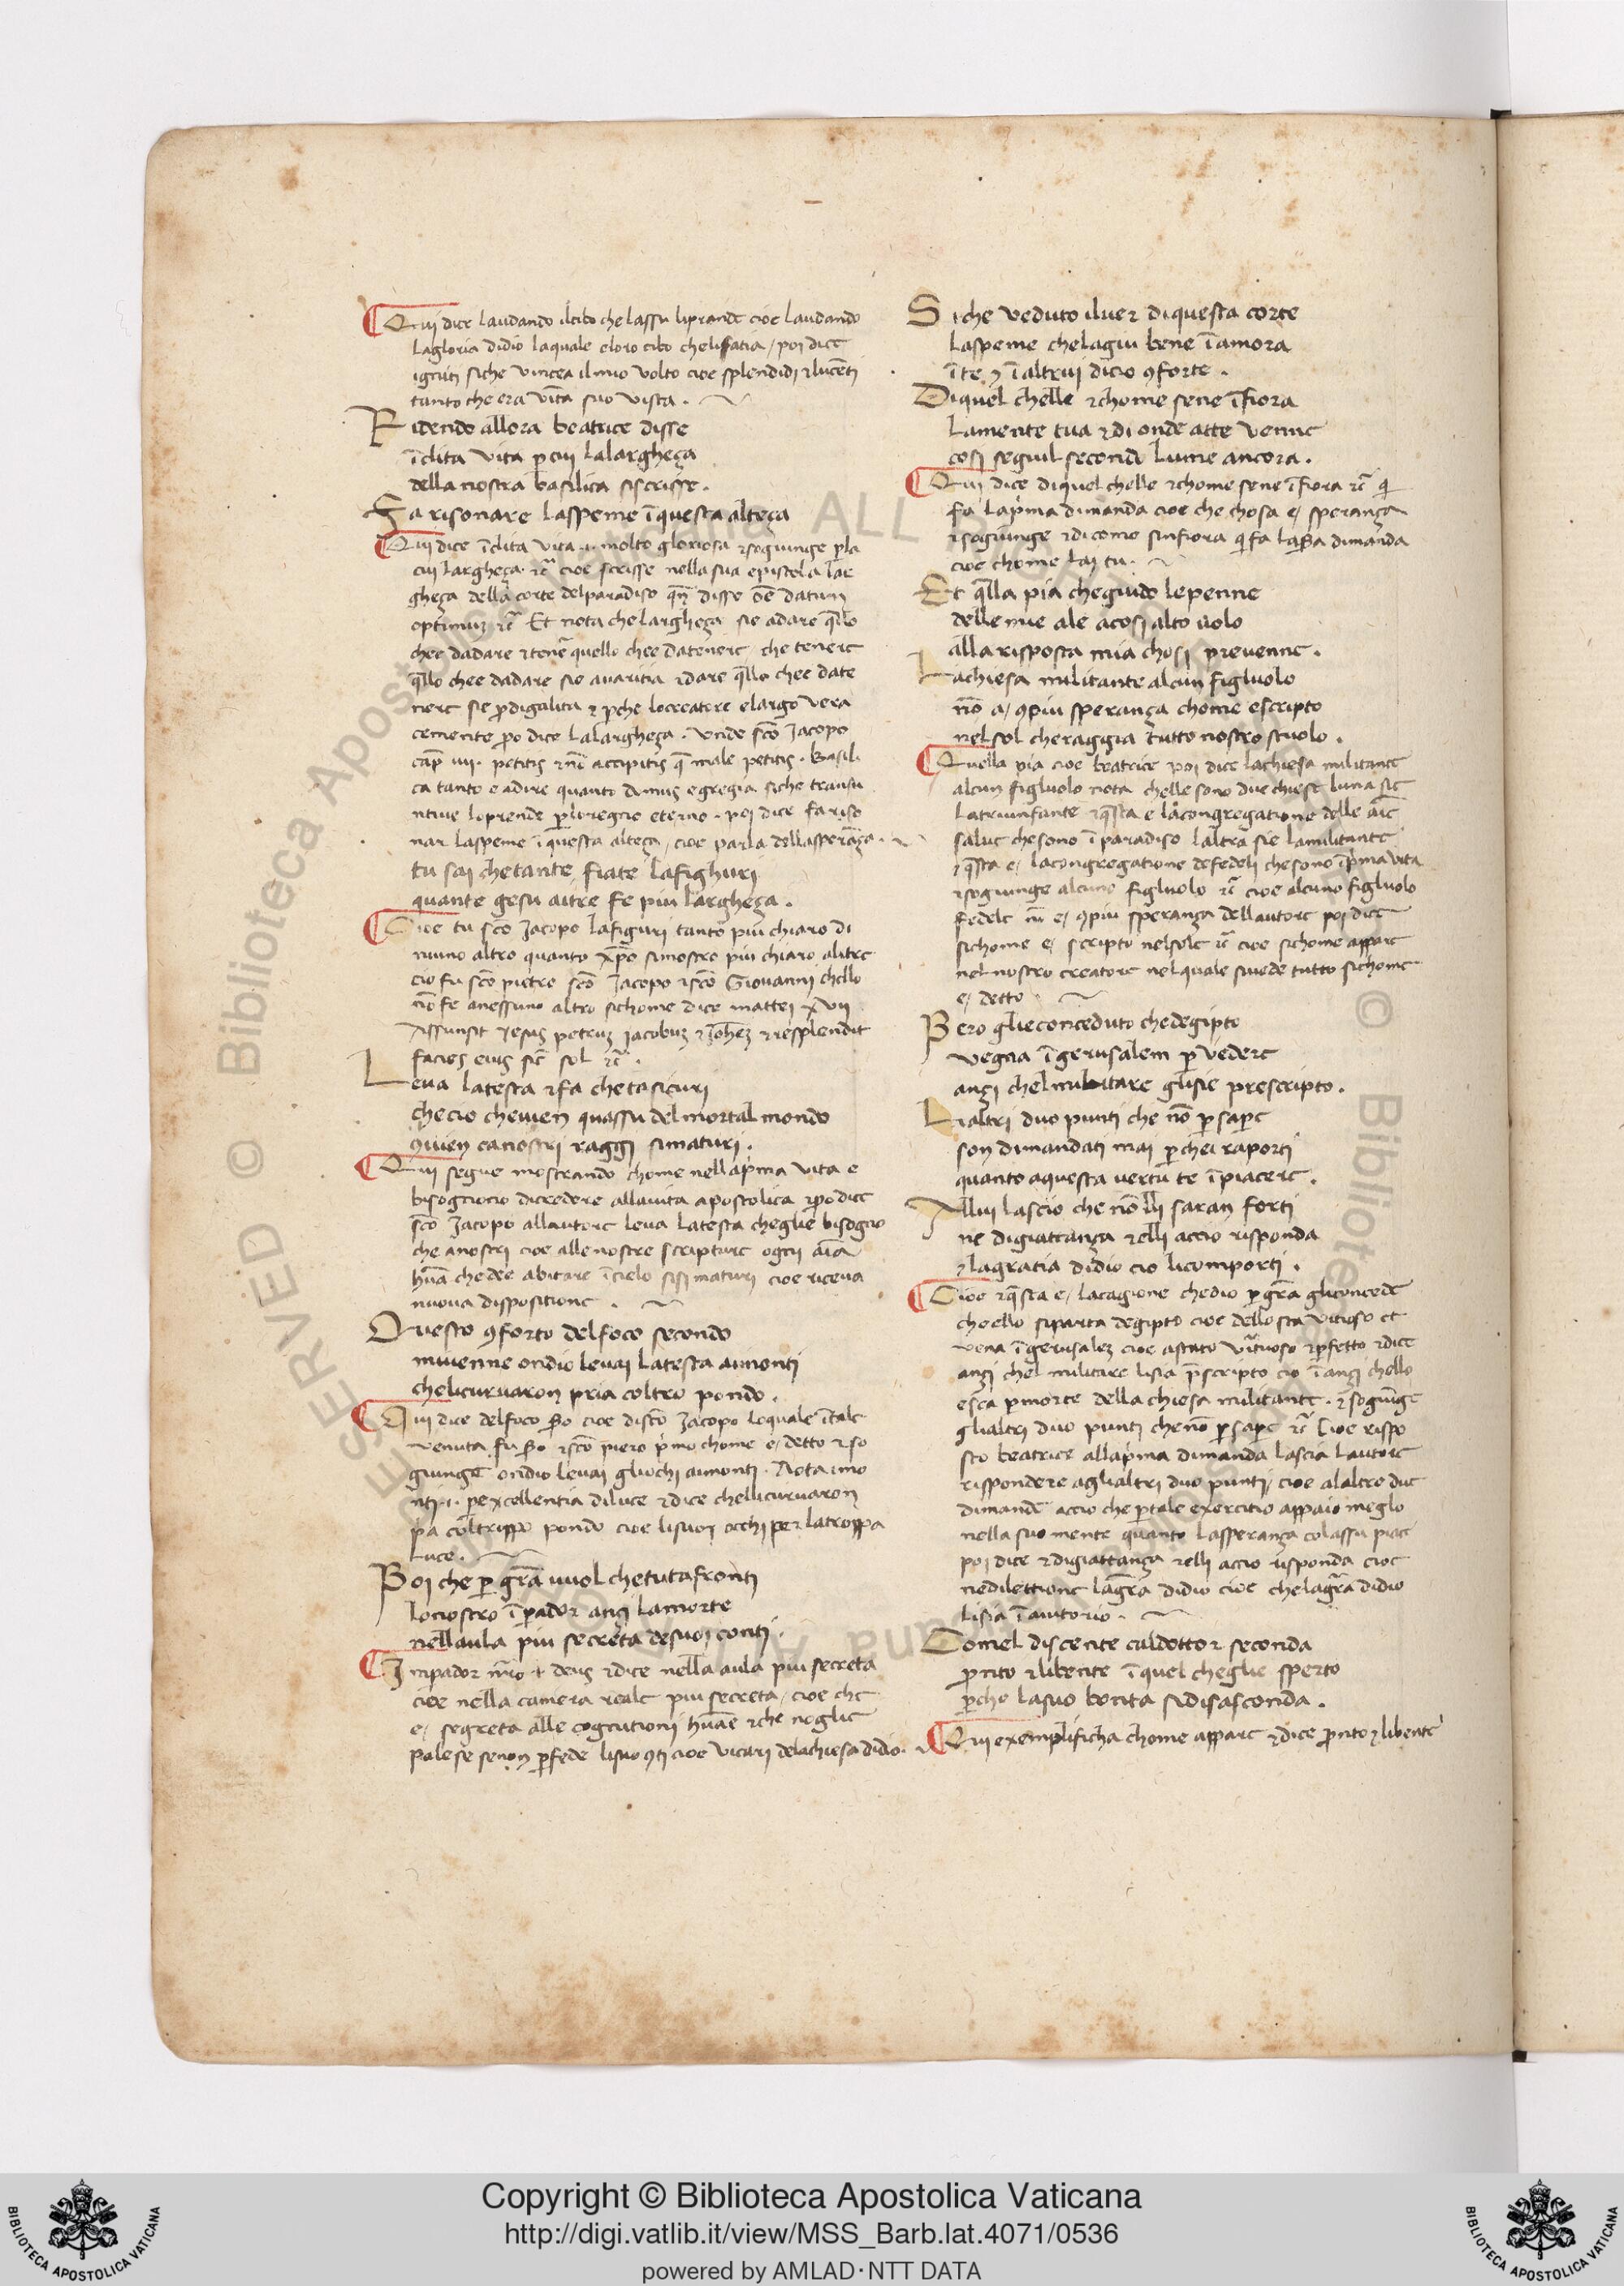 Qui dice laudando il cibo che lassu liprande cioe laudando
la gloria didio laquale eloro cibo chelisatia / poi dice
igniti siche vincea il mio volto cioe splendidi ⁊ lucēti
tanto che era vīta suo vista .
Ridendo allora beatrice disse
īclita vita p̄ cui lalargheça
della nostra basilica si scrisse .
Fa risonare laspeme ī questa alteça
Qui dice īclita vita .i. molto gloriosa ⁊ sogiunge p̄ la
cui largheça . ⁊c̄ cioe scrisse nella sua epistola lar
gheça della corte del paradiso qn̄ disse oē datum
optimuz ⁊c̄ Et nota che largheça sie adare q̄llo
chee dadare ⁊ tenē quello chee datenere che tenere
q̄llo chee dadare sie avaritia ⁊ dare q̄llo chee date
nere sie p̄digalita ⁊ p̄che locreatore elargo vera
cemente p̄o dice lalargheça . Unde sc̄o Jacopo
cap̄ iiii . petitis ⁊ nō accipitis q̄ male petitis . Basili
ca tanto e adire quanto domus egregia siche transu
ntive loprende p̄ loregno eterno . poi dice fa riso
nar laspeme ī questa alteça / cioe parla dellasperāça .
tu sai chetante fiate lafighuri
quante gesu aitre fe piu largheça .
Cioe tu sc̄o Jacopo lafiguri tanto piu chiaro di
niuno altro quanto xp̄o simostro piu chiaro alitre
cio fu sc̄o pietro sc̄o Jacopo ⁊ sc̄o Giovanni chello
nō fe anessuno altro sichome dice mattei xvii
Assunsit Jesus petruz jacobuz ⁊ Joħez ⁊ resplendit
facies eius sic̄ sol ⁊c̄ .
Leva latesta ⁊ fa chetasicuri
checio cheuien quassu del mortal mondo
9uien canostri raggi simaturi .
Qui segue mostrando chome nellap̄ma vita e
bisognono dicredere allavita apostolica ⁊ p̄o dice
sc̄o Jacopo allautore leva latesta cheglie bisogno
che anostri cioe alle nostre scripture ogni aīa
hūa chedee abitare ī cielo sisimaturi cioe riceva
nuova dispositione .
Questo 9forto delfoco secondo
miuenne ondio levai latesta aimonti
chelicuruaron pria coltro pondo .
Qui dice delfoco s̄o cioe disc̄o Jacopo loquale ītale
venuta fu s̄o ⁊ sc̄o piero p̄mo chome e / detto ⁊ so
giunge ondio levai gliochi aimonti . Nota imo
nti .i. p̄ excellentia diluce ⁊ dice chellicuruaron
p̄a coltrippo pondo cioe lisuoi occhi per latroppa
luce .
Poi che p̄ gr̄a vuol chetutafronti
lonostro īp̄ador anzi lamorte
nellaula piu secreta desuoi conti .
Inpador nr̄o .i. deus ⁊ dice nella aula piu secreta
cioe nella camera reale piu secreta / cioe che
e / segreta alle cognitioni hūae ⁊ che noglie
palese senon p̄ fede lisuo 9ti cioe vicari delachiesa didio .
Siche veduto iluer diquesta corte
laspeme chelagiu bene īamora
īte ⁊ īaltrui dicio 9forte .
Diquel chelle ⁊ chome sene īfiora
lamente tua ⁊ di onde atte venne
cosi seguil secondo lume ancora .
Qui dice diquel chelle ⁊ chome sene īfiora ⁊c̄ qi
fa lap̄ma dimanda cioe che chosa e / sperança
⁊ sogiunge ⁊ di como sinfiora qi fa las̄a dimanda
cioe chome lai tu .
Et q̄lla pia cheguido lepenne
delle mie ale acosi alto volo
alla risposta mia chosi prevenne .
Lachiesa militante alcun figluolo
nō a / 9piu sperança chome escripto
nelsol cheraggia tutto nostro stuolo .
Quella pia cioe beatrice poi dice lachiesa militante
alcun figluolo nota chelle sono due chiese luna sie
latriunfante ⁊ q̄sta e lacongregatione delle aīe
salue chesono ī paradiso laltra sie lamilitante
⁊ q̄sta e / lacongregatione defedeli chesono īp̄ma vita
⁊ sogiunge alcuno figluolo ⁊c̄ cioe alcuno figluolo
fedele nō e / 9piu sperança dellautore poi dice
sichome e / scripto nelsole ⁊c̄ cioe sichome appare
nel nostro creatore nelquale sivede tutto sichome
e / detto
Pero glieconceduto chedegipto
vegna īgerusalem p̄ vedere
anzi chel militare glisie prescripto .
Lialtri duo punti che nō p̄ sap̄e
son dimandati mai p̄ chei raporti
quanto aquesta vertu te ī piacere .
Allui lascio che nōlli saran forti
ne digiattança ⁊ elli accio risponda
⁊ lagratia didio cio licomporti .
Cioe ⁊ q̄sta e / lacagione chedio p̄ gr̄a gliconcede
choello siparta degipto cioe dellosta vitioso et
vena īgerusalez cioe astato vituoso ⁊ p̄fetto ⁊ dice
anzi chel militare lisia p̄scripto cio ī anzi chello
esca p̄ morte della chiesa militante . ⁊ sogiūge
glialtri duo punti chenō p̄ sap̄e ⁊c̄ Cioe rispo
sto beatrice allap̄ma dimanda lascia lautore
rispondere aglialtri duo punti / cioe alaltre due
dimande accio che p̄ tale exercitio appaio meglo
nella suo mente quanto lasperança colassu piac
poi dice ⁊ digiattança ⁊ elli accio risponda cioe
nedilettione lagr̄a didio cioe chelagr̄a didio
lisia ī aiutorio .
Comel discente caldottor seconda
p̄nto ⁊ libente īquel cheglie sperto
p̄cho lasuo bonta sidisasconda .
Qui exemplificha chome appare ⁊ dice p̄nto ⁊ libente
Copyright © Biblioteca Apostolica Vaticana
http://digi.vatlib.it/view/MSS_Barb.lat.4071/0536
powered by AMLAD·NTT DATA